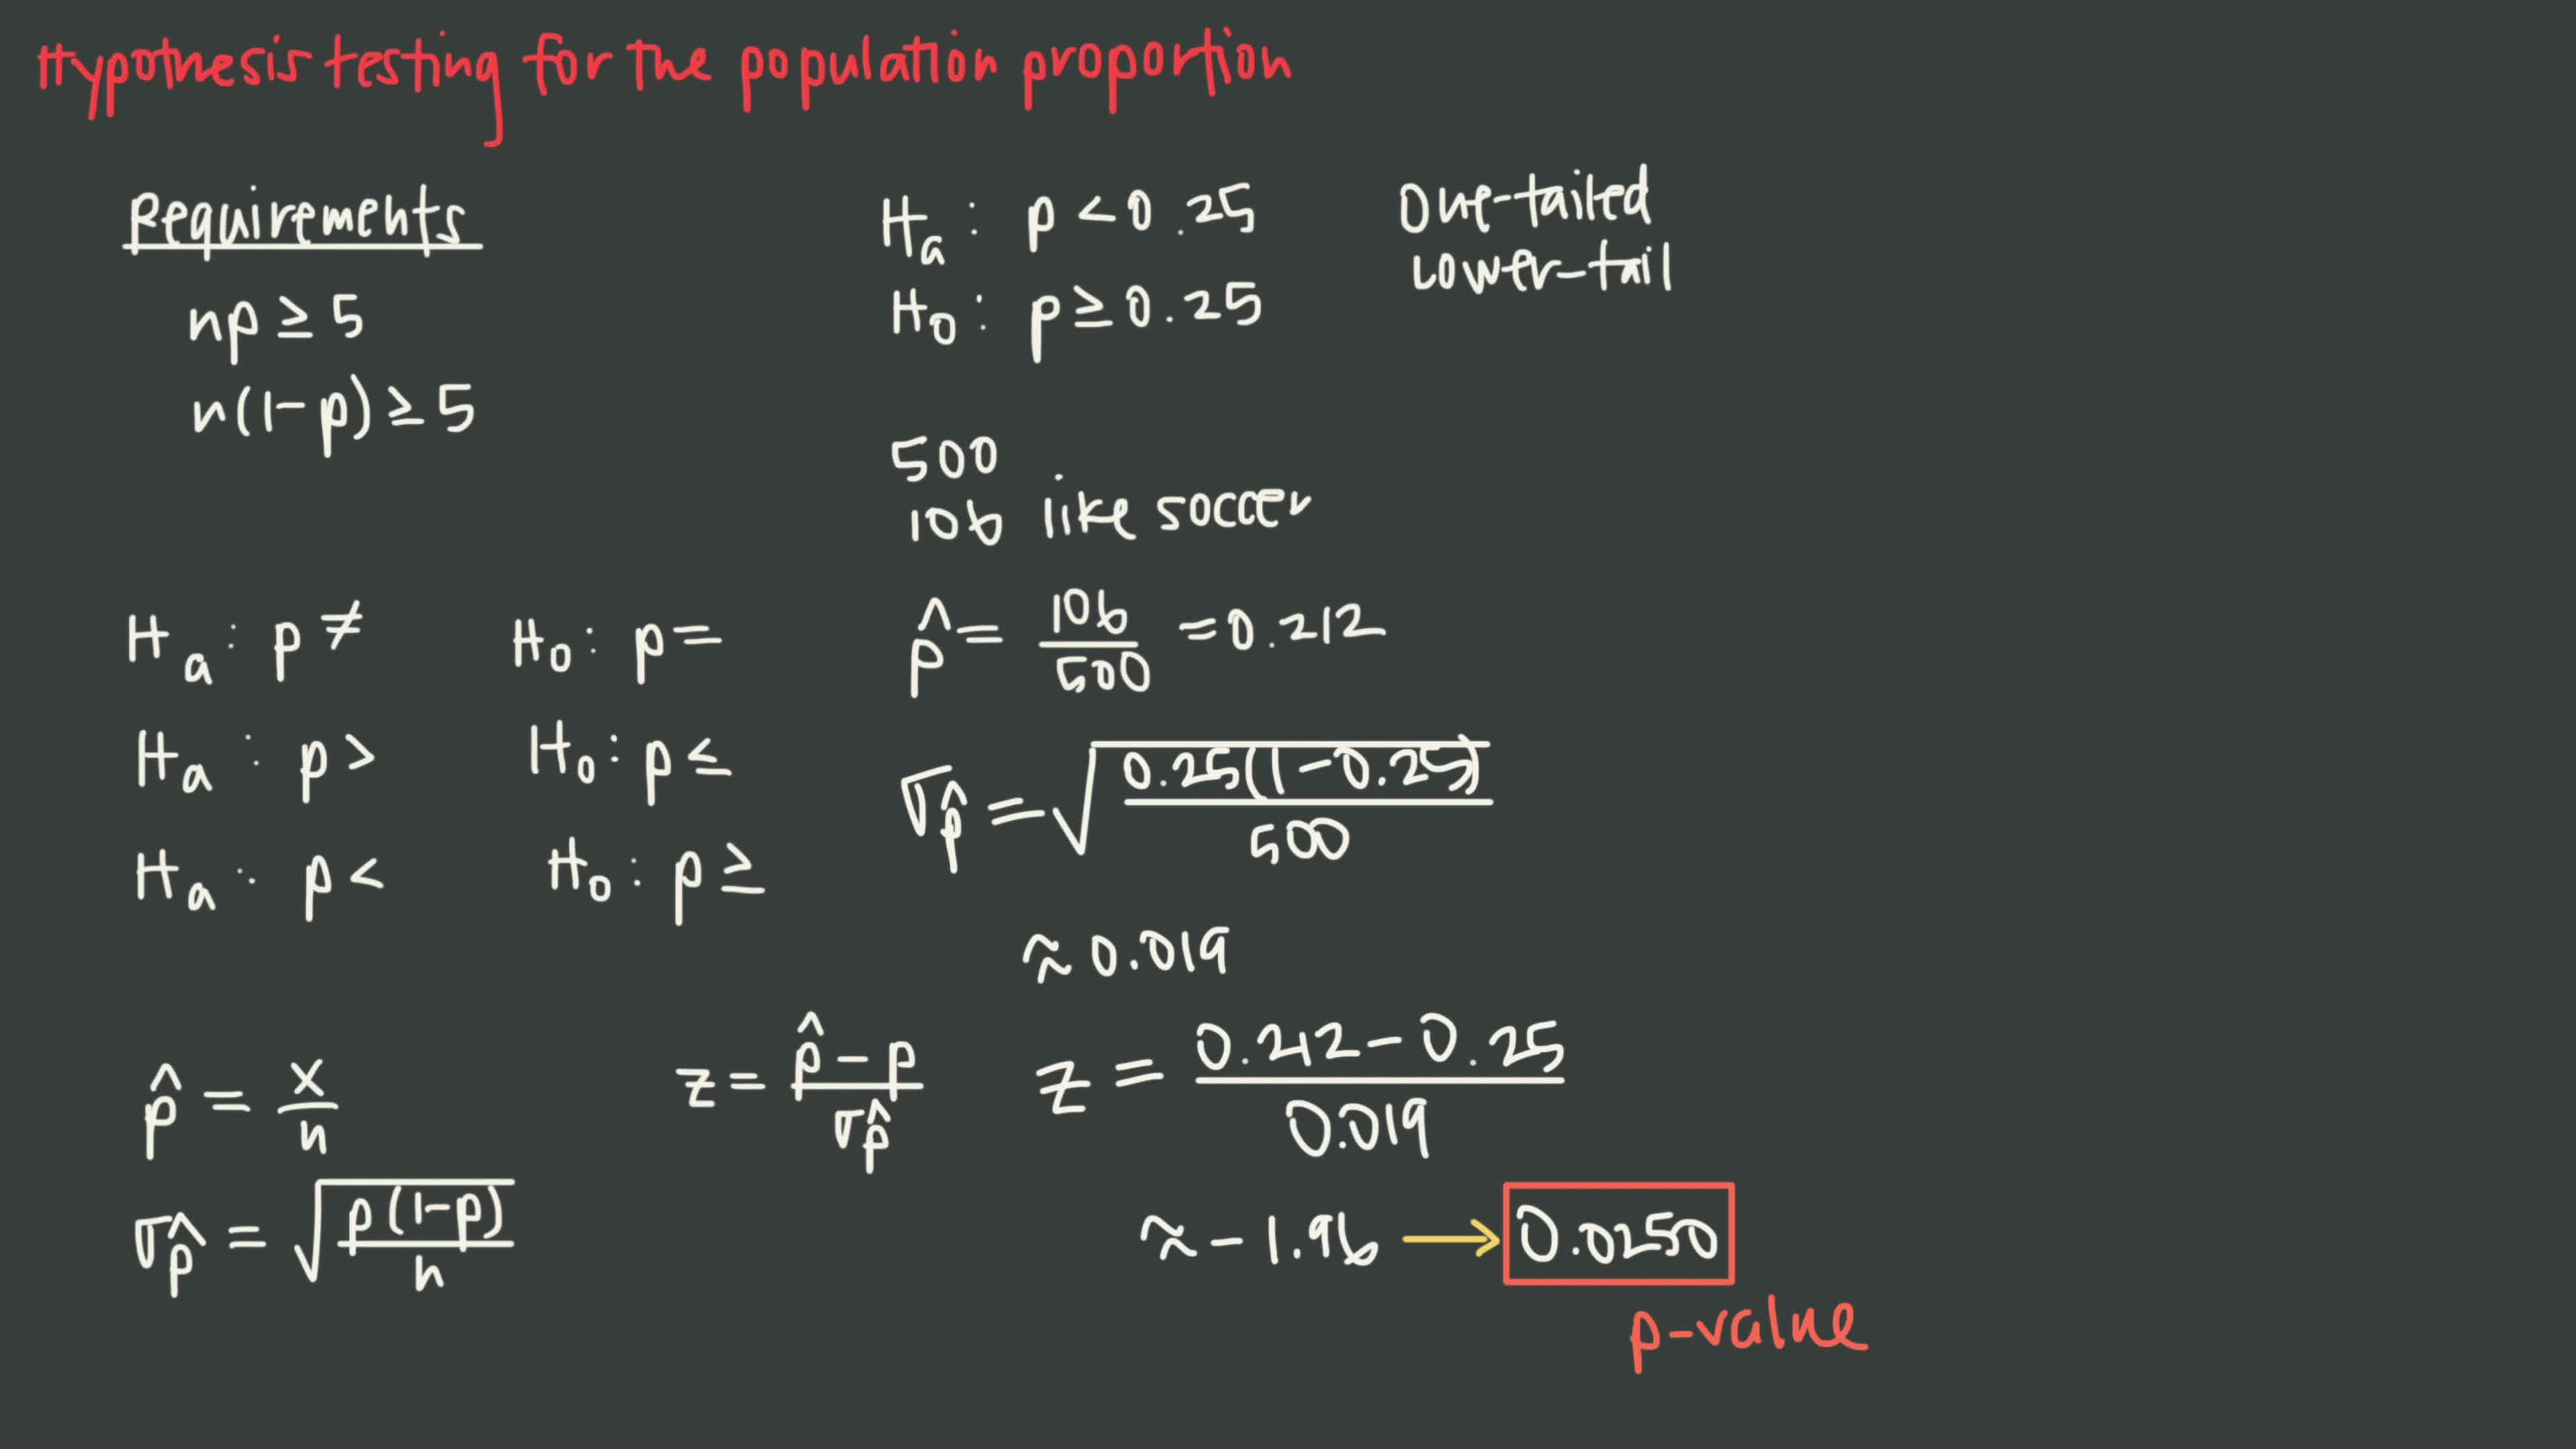 Hypothesis testing for the population proportion
Requirements
np ≥ 5
n(1-p) ≥ 5
Hₐ : p ≠
H₀ : p =
Hₐ : p >
H₀ : p ≤
Hₐ : p <
H₀ : p ≥
p̂ = x/n
σp̂ = √(p(1-p)/n)
z = (p̂ - p)/σp̂
Hₐ : p < 0.25
H₀ : p ≥ 0.25
One-tailed
Lower-tail
500
106 like soccer
p̂ = 106/500 = 0.212
σp̂ = √(0.25(1-0.25)/500)
≈ 0.019
z = (0.212 - 0.25)/0.019
≈ -1.96 → 0.0250
p-value